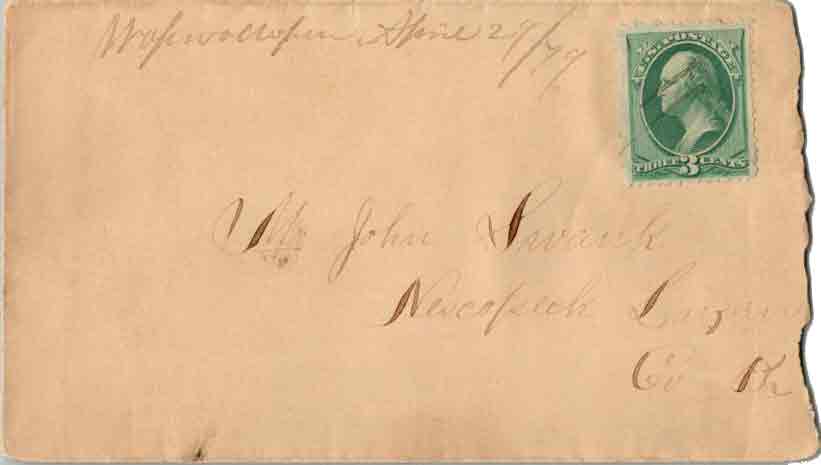 Wapwallopen April 29/79
U.S. POSTAGE
THREE 3 CENTS
Mr John Swank
Nescopeck Luzerne
Co Pa